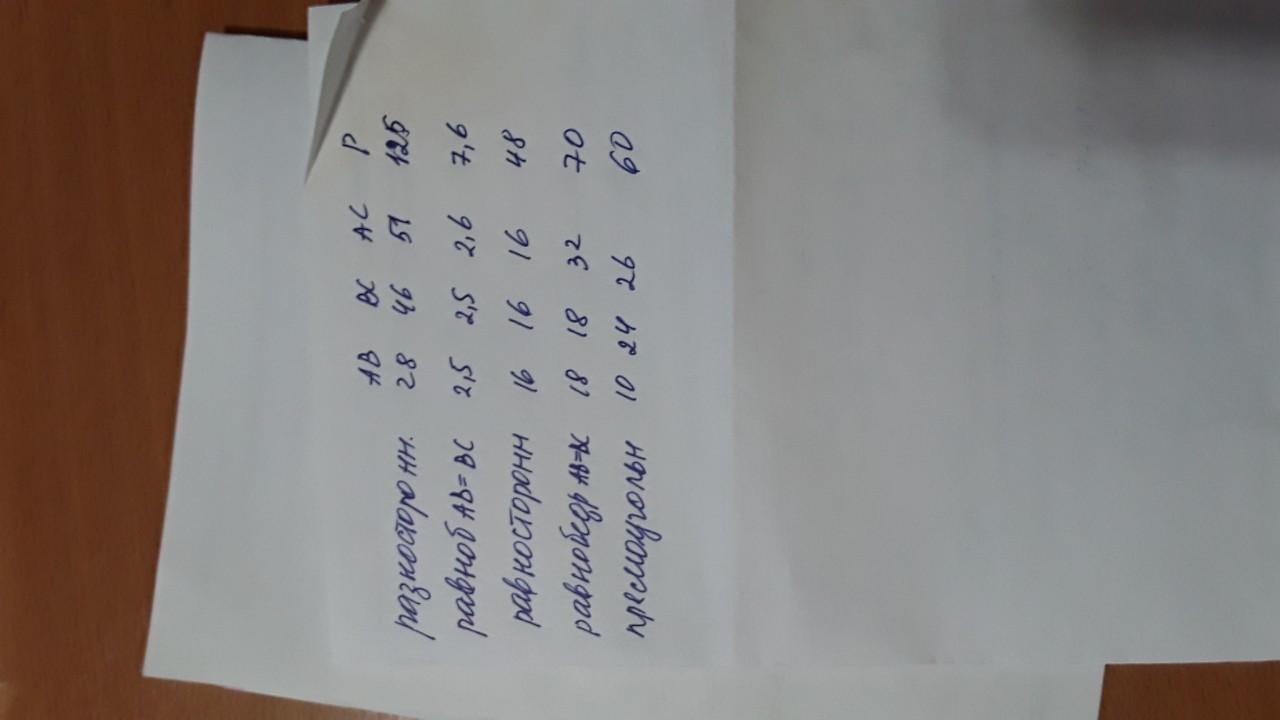 AB BC AC P
разносторонн. 28 46 51 125
равноб AB=BC 2,5 2,5 2,6 7,6
равносторонн 16 16 16 48
равнобедр AB=BC 18 18 32 70
прямоугольн 10 24 26 60